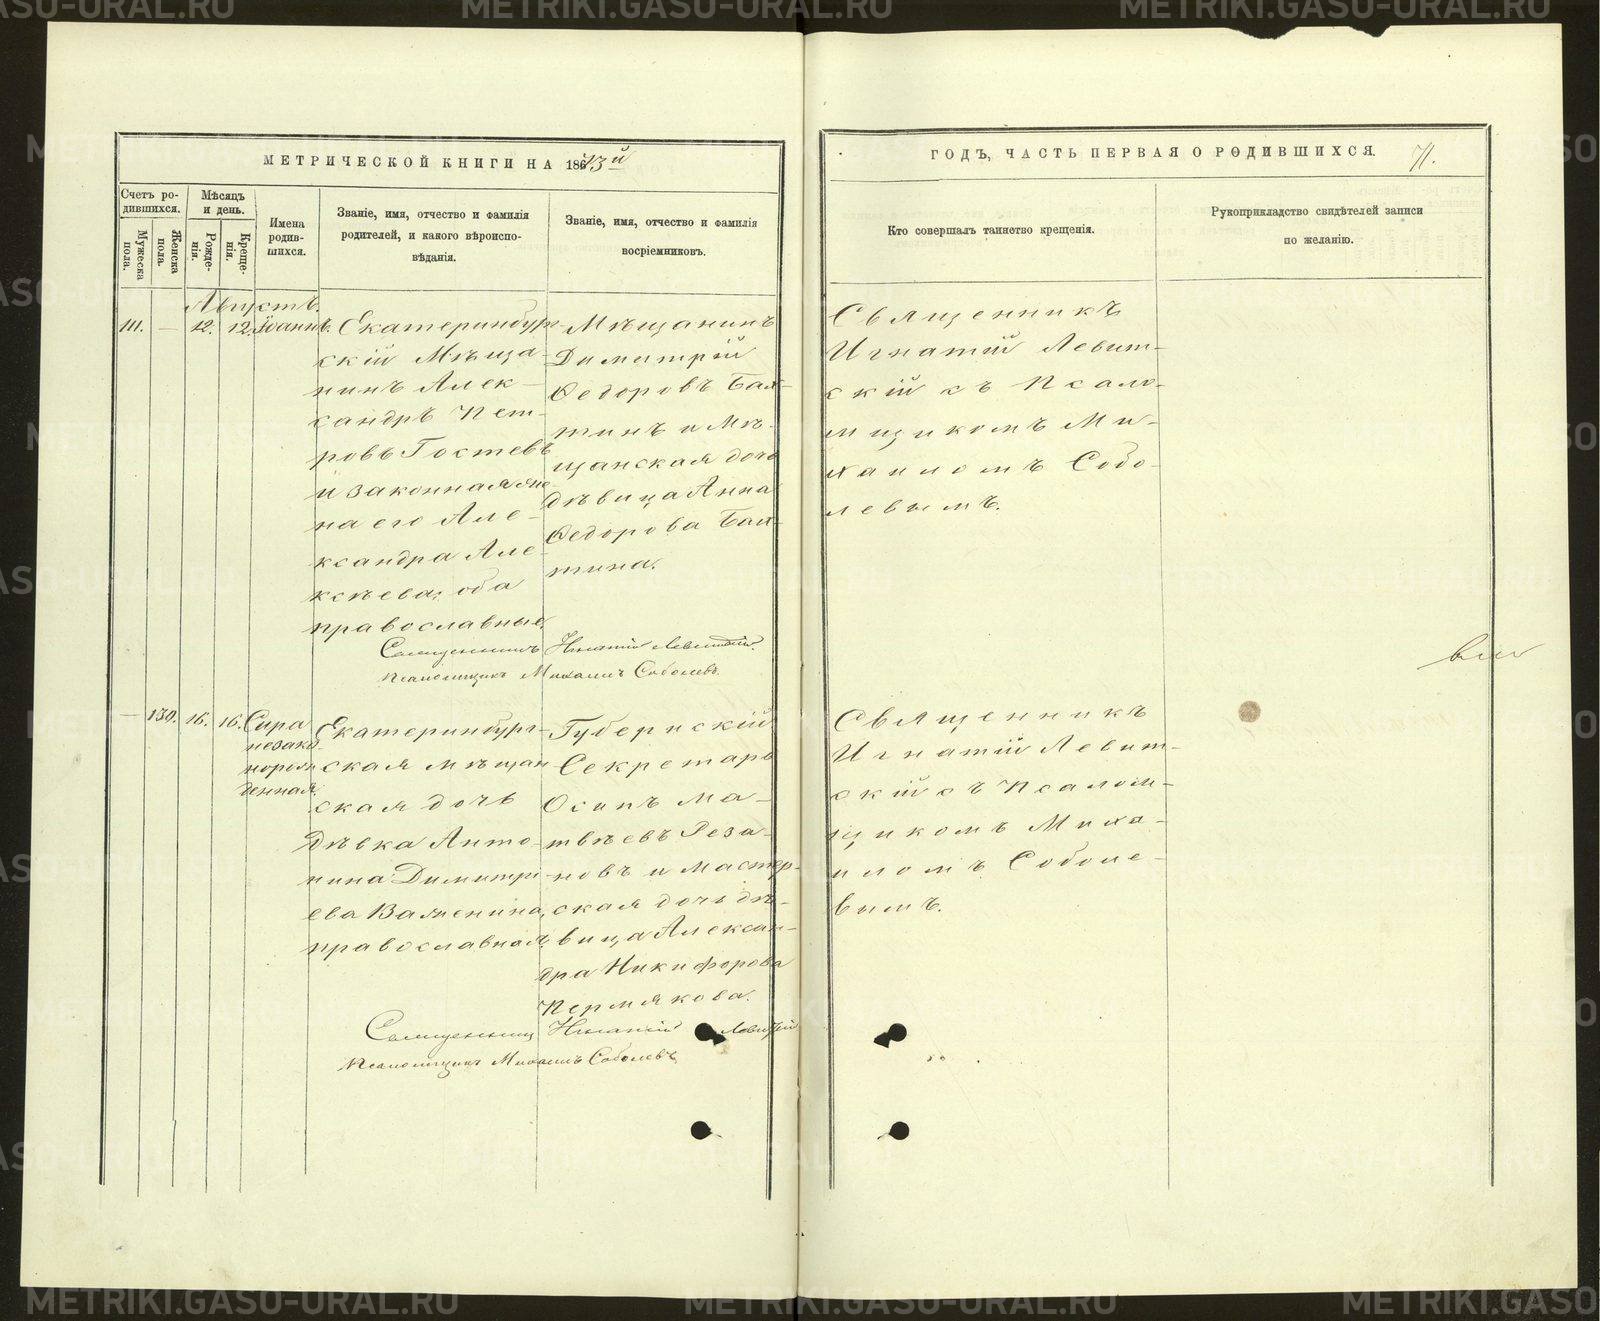 МЕТРИЧЕСКОЙ КНИГИ НА 1873й
ГОДЪ, ЧАСТЬ ПЕРВАЯ О РОДИВШИХСЯ. 71.
Счетъ родившихся.
Мужеска пола.
Женска пола.
Мѣсяцъ и день.
Рожденія.
Крещенія.
Имена родившихся.
Званіе, имя, отчество и фамилія
родителей, и какого вѣроиспо-
вѣданія.
Званіе, имя, отчество и фамилія
восріемниковъ.
Кто совершалъ таинство крещенія.
Рукоприкладство свидѣтелей записи
по желанію.
Августъ.
111. — 12. 12. Іоаннъ.
Екатеринбург-
скій Мѣща-
нинъ Алек-
сандръ Пет-
ровъ Гостевъ
и законная же-
на его Але-
ксандра Але-
ксѣева, оба
православные.
Мѣщанинъ
Димитрій
Ѳедоровъ
и Мѣ-
щанская дочь
дѣвица Анна
Ѳедорова
Священникъ
Игнатій Левит-
скій съ Псало-
мщикомъ Ми-
хаиломъ Собо-
левымъ.
Священникъ Игнатій Левитскій.
Псаломщикъ Михаилъ Соболевъ.
— 130. 16. 16. Сира
незако-
норож-
денная.
Екатеринбург-
ская мѣщан-
ская дочь
дѣвка Анто-
нина Димитрі-
ева
православная.
Губернскій
Секретарь
Осипъ Ма-
твѣевъ Реза-
новъ и мастер-
ская дочь дѣ-
вица Алексан-
дра Никифорова
Пермякова.
Священникъ
Игнатій Левит-
скій съ Псалом-
щикомъ Миха-
иломъ Соболе-
вымъ.
Священникъ Игнатій Левитскій
Псаломщикъ Михаилъ Соболевъ
METRIKI.GASU-URAL.RU